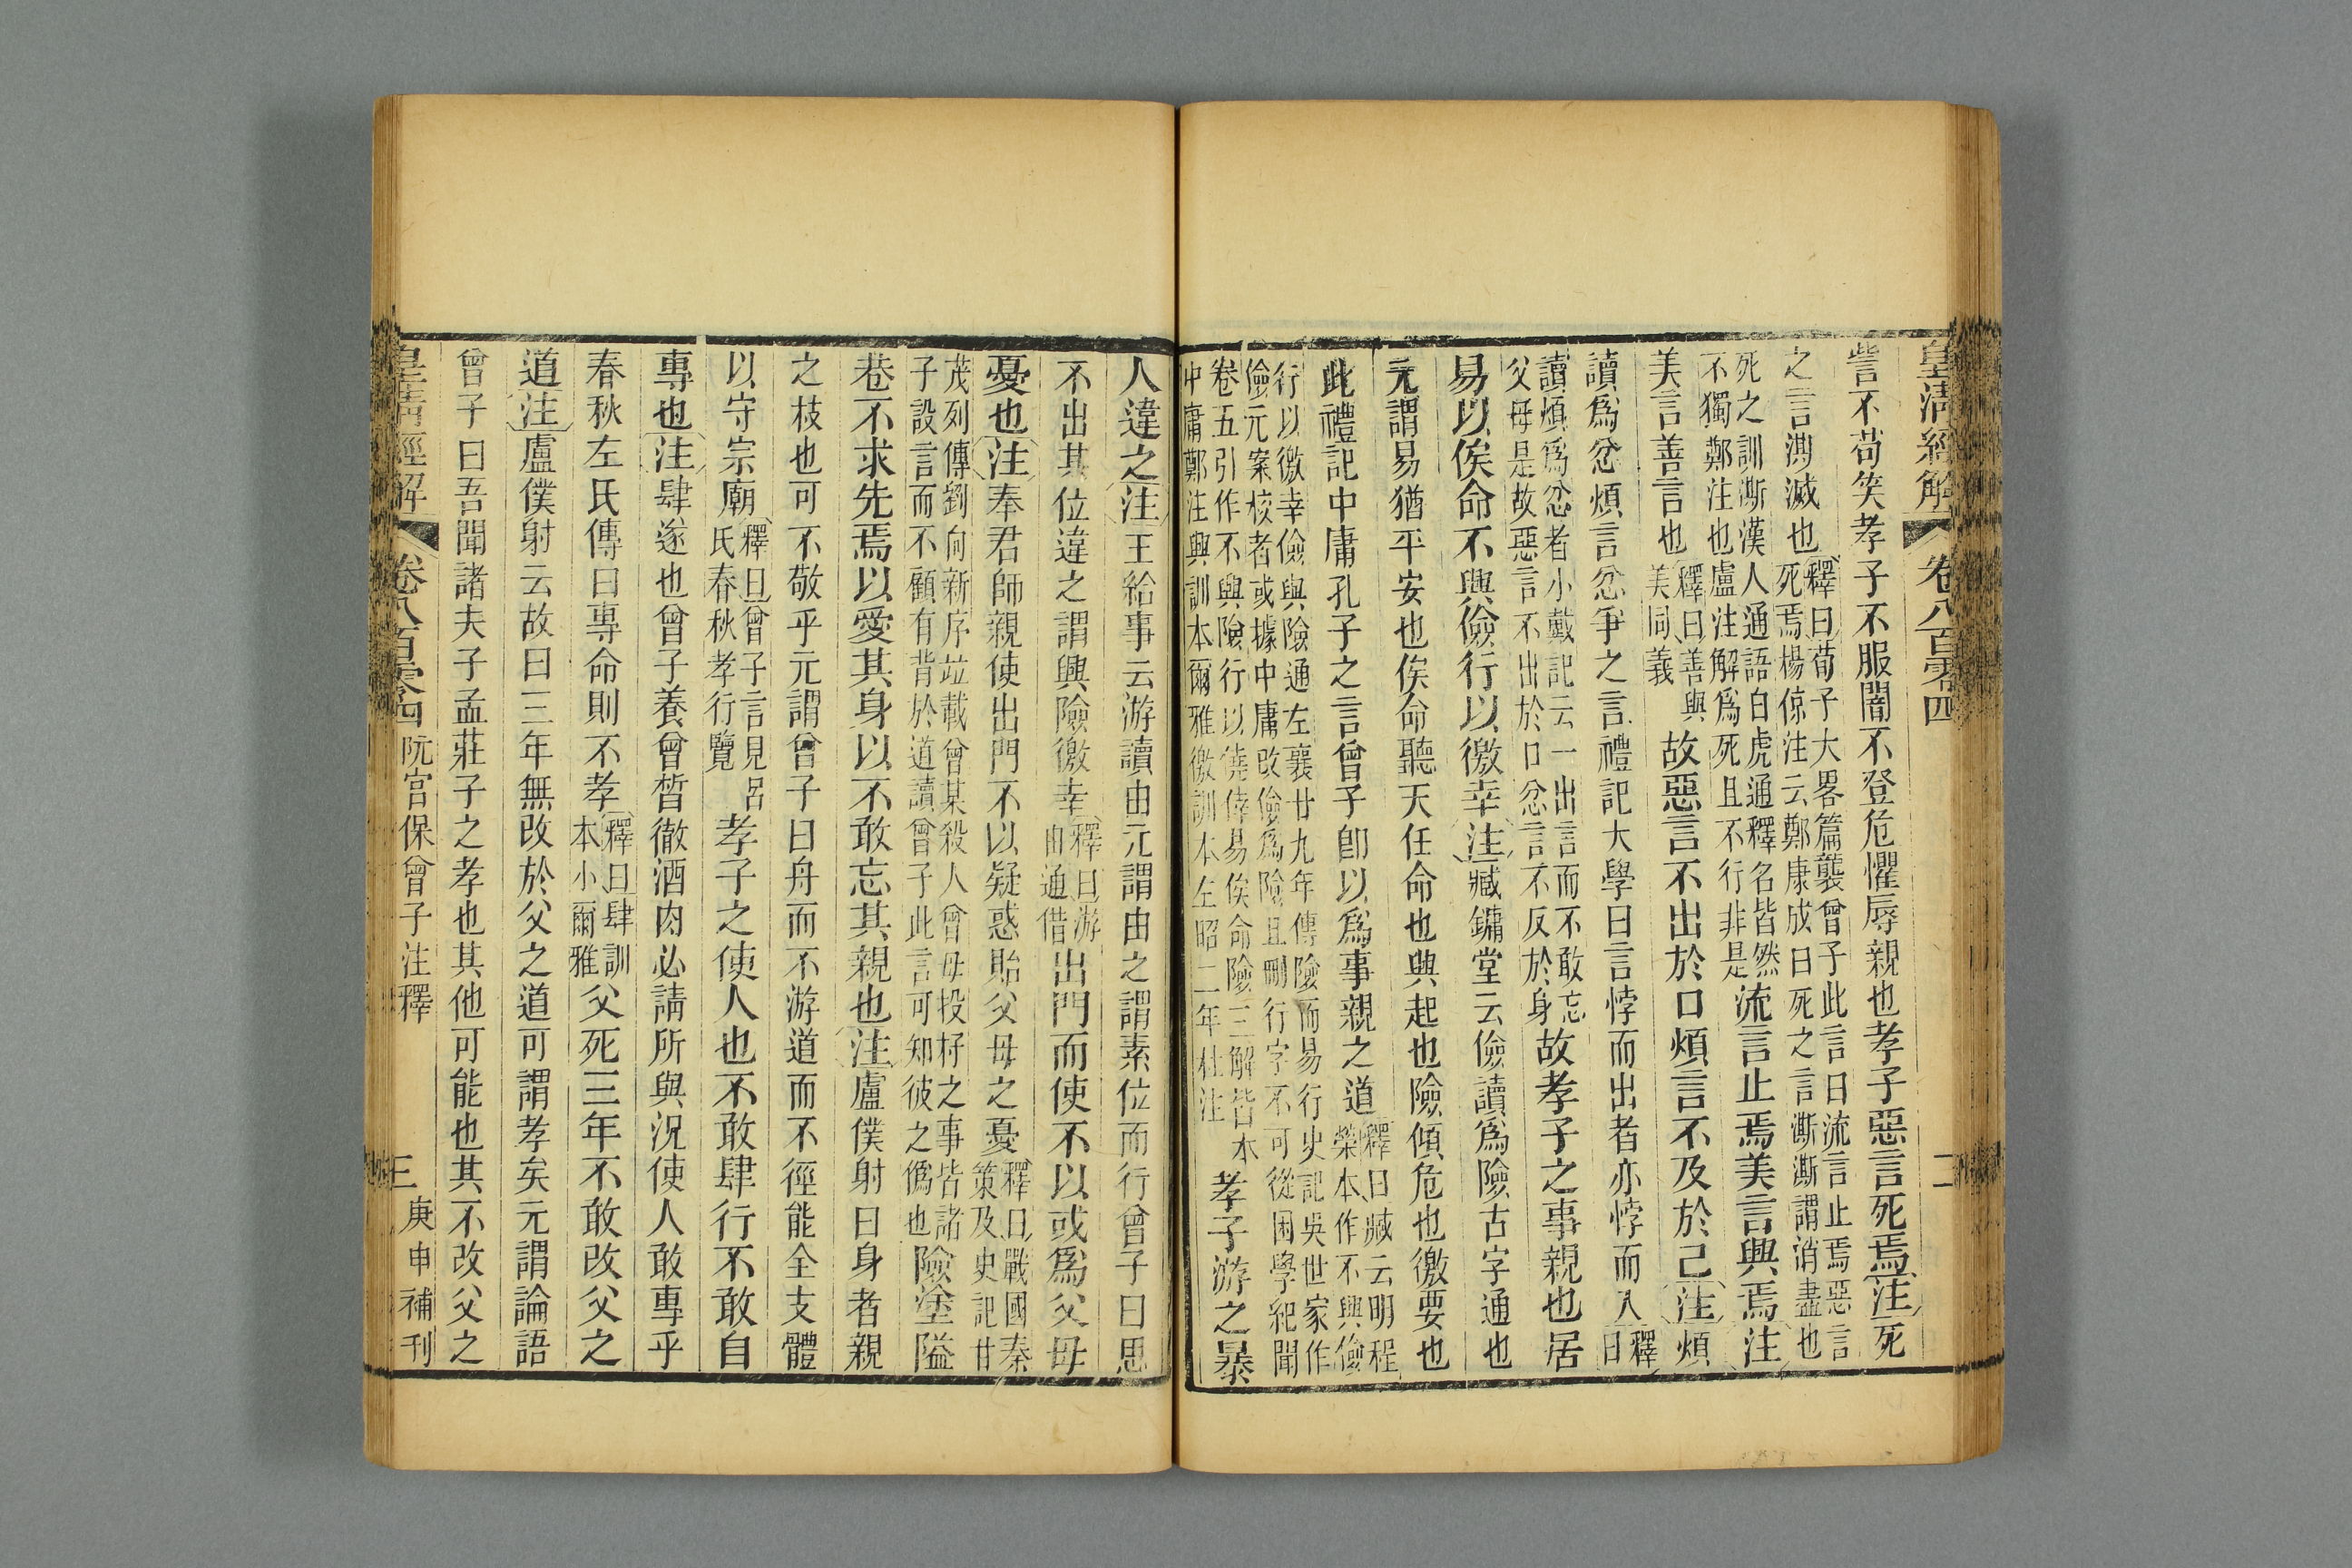 皇清經解 卷八百零四 二
訾不苟笑孝子不服闇不登危懼辱親也孝子惡言死焉注死
之言澌滅也釋曰荀子大畧篇襲曾子此言曰流言止焉惡言
死焉楊倞注云鄭康成曰死之言澌澌謂消盡也
死之訓澌漢人通語白虎通釋名皆然
不獨鄭注也盧注解爲死且不行非是流言止焉美言興焉注
美言善言也釋曰善與
美同義故惡言不出於口煩言不及於己注煩
讀爲忿煩言忿爭之言禮記大學曰言悖而出者亦悖而入釋曰
讀煩爲忿者小戴記云一出言而不敢忘
父母是故惡言不出於口忿言不反於身故孝子之事親也居
易以俟命不興儉行以徼幸注臧鏞堂云儉讀爲險古字通也
元謂易猶平安也俟命聽天任命也興起也險傾危也徼要也
此禮記中庸孔子之言曾子卽以爲事親之道釋曰臧云明程
榮本作不興儉
行以徼幸儉與險通左襄廿九年傳險而易行史記吳世家作
儉元案校者或據中庸改儉爲險且刪行字不可從困學紀聞
卷五引作不興險行以僥倖易俟命險三解皆本
中庸鄭注興訓本爾雅徼訓本左昭二年杜注孝子游之暴
人違之注王給事云游讀由元謂由之謂素位而行曾子曰思
不出其位違之謂興險徼幸釋曰游
由通借出門而使不以或爲父母
憂也注奉君師親使出門不以疑惑貽父母之憂釋曰戰國秦
策及史記甘
茂列傳劉向新序竝載曾某殺人曾母投杼之事皆諸
子設言而不顧有背於道讀曾子此言可知彼之僞也險塗隘
巷不求先焉以愛其身以不敢忘其親也注盧僕射曰身者親
之枝也可不敬乎元謂曾子曰舟而不游道而不徑能全支體
以守宗廟釋曰曾子言見呂
氏春秋孝行覽孝子之使人也不敢肆行不敢自
專也注肆遂也曾子養曾皙徹酒肉必請所與況使人敢專乎
春秋左氏傳曰專命則不孝釋曰肆訓
本小爾雅父死三年不敢改父之
道注盧僕射云故曰三年無改於父之道可謂孝矣元謂論語
曾子曰吾聞諸夫子孟莊子之孝也其他可能也其不改父之
皇清經解 卷八百零四 阮宮保曾子注釋 三 庚申補刊